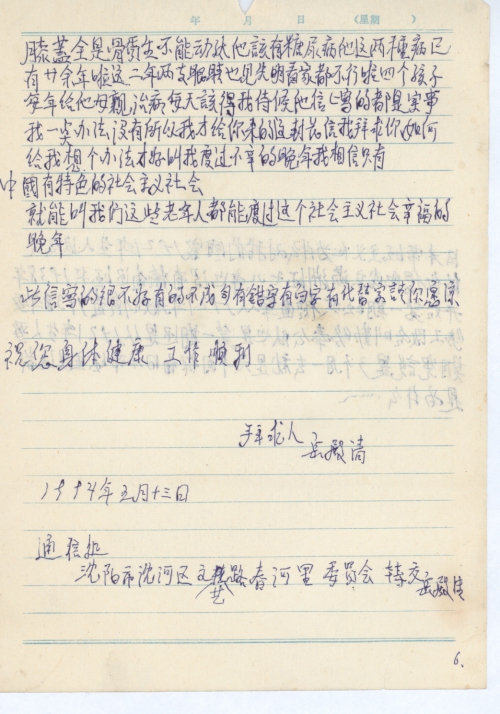 年 月 日 (星期 )
膝蓋全是骨质生不能动扶他該有糖尿病他这两種病已
有廿余年啦这二年两支眼肢也见先明看家都不行啦四个孩子
每年给他母親治病每天該得我侍候他信上写的都是实事
我一点办法没有所以我才给你来的这封信我拜求你如何
给我想个办法才好叫我度过不幸的晚年我相信只有
中國有特色的社会主义社会
就能叫我们这些老年人都能度过这个社会主义社会幸福的
晚年
此信写的很不好有的不成句有错字有白字有代替字請你原谅
祝您身体健康 工作顺利
拜求人
岳殿清
1994年五月十三日
通信扯
沈阳市沈河区文艺路春河里委员会 轉交岳殿清
6.